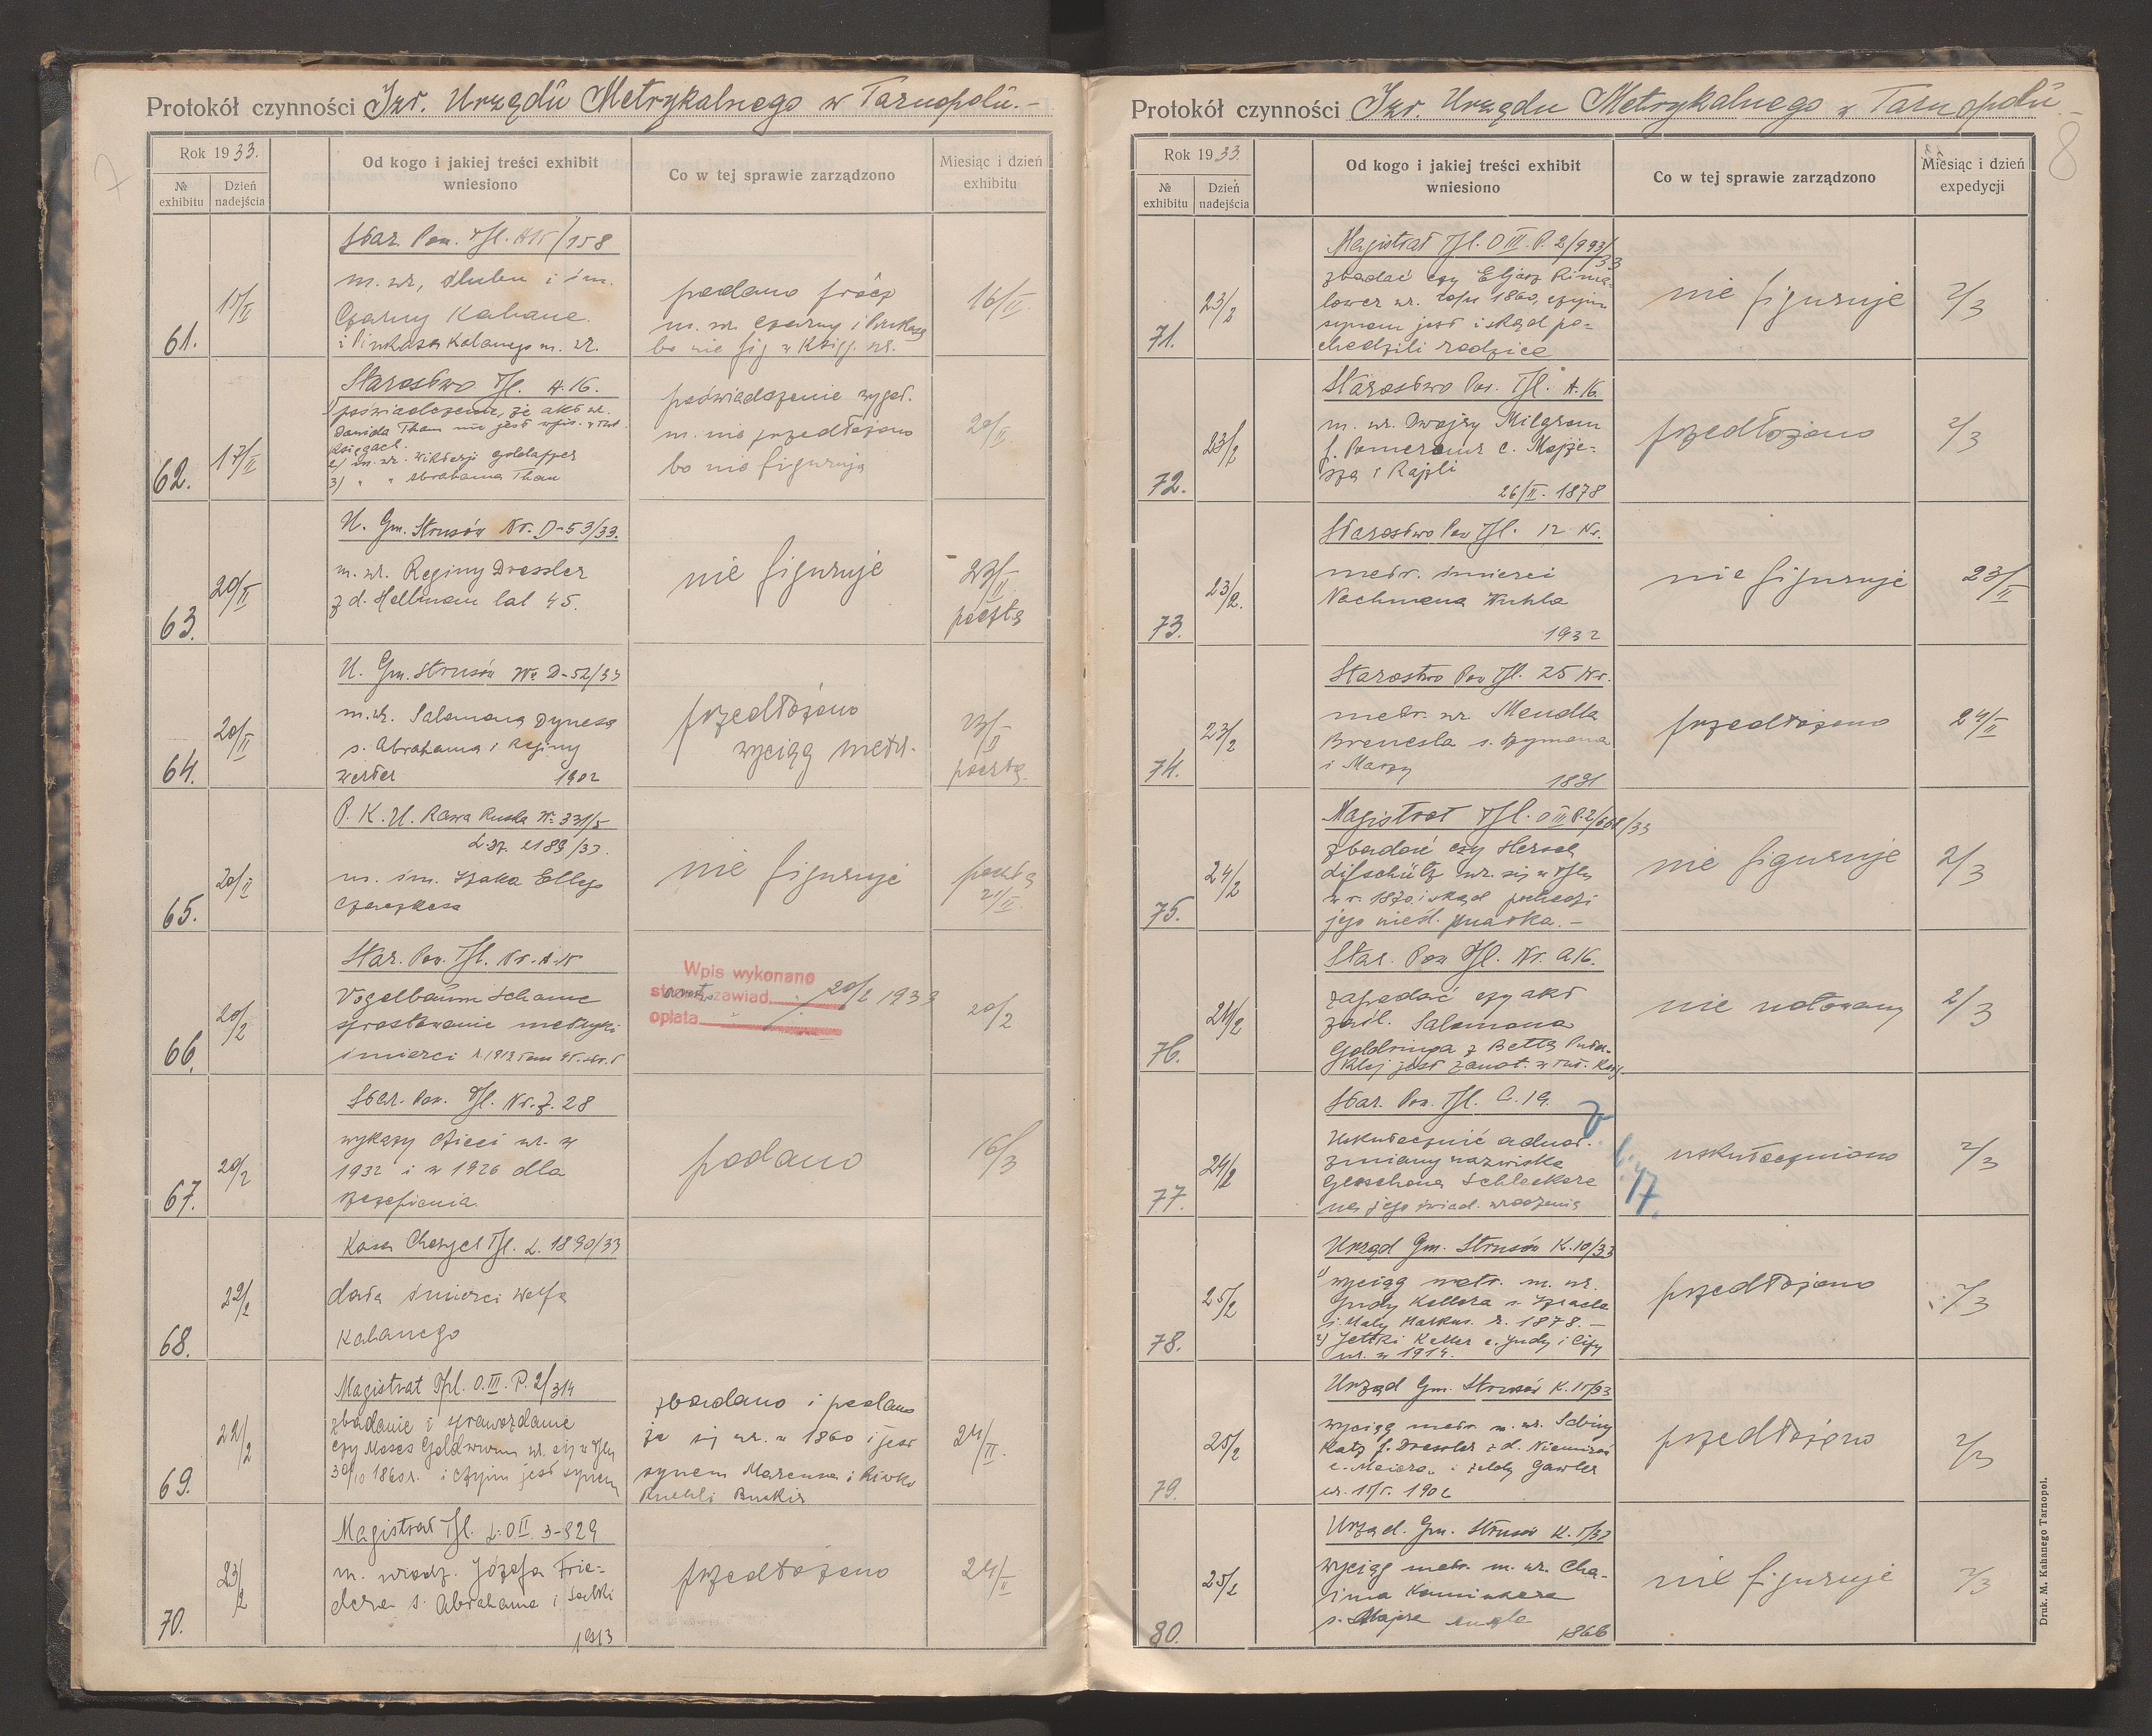 7
Protokół czynności Izr. Urzędu Metrykalnego w Tarnopolu.-
Rok 1933.
Od kogo i jakiej treści exhibit
wniesiono
Co w tej sprawie zarządzono
Miesiąc i dzień
exhibitu
№
exhibitu
Dzień
nadejścia
61.
15/II
Star. Pow. Tpl. /158
m. ur, ślubu i śm.
Czarny Kahane
i Pinkasa Kahanego m. ur.
podano prócz
m. ur. Czarny i Pinkasa
bo nie fig w Księg. ur.
16/II
62.
17/II
Starostwo Tpl. A. 16.
1) poświadczenie, że akt ur.
Dawida Tham nie jest wpis. w tut.
księgach.
2) m. ur. Wiktorji
3) " " Abrahama Tham
poświadczenie wygot.
m. nie przedłożono
bo nie figurują
20/II
63.
20/II
U. Gm. Strusów Nr. D-53/33.
m. ur. Reginy Dressler
z d. Hellman lat 45.
nie figuruje
23/II
pocztą
64.
20/II
U. Gm. Strusów Nr. D-52/33
m. ur. Salomona Dynesa
s. Abrahama i Reginy
1902
przedłożono
wyciąg metr.
23/II
pocztą
65.
20/II
P. K. U. Rawa Ruska № 331/5
L. sp. 2189/33.
m. śm. Izaka
nie figuruje
pocztą
21/II
66.
20/2
Star. Pow. Tpl. Nr.
Vogelbaum
sprostowanie metryki
śmierci
Wpis wykonano
zawiad. 20/2 1933
opłata
20/2
67.
20/2
Star. Pow. Tpl. Nr. Z. 28
wykazy dzieci ur. w
1932 i w 1926 dla
szczepienia
podano
16/3
68.
22/2
Kasa Chorych Tpl. L. 1890/33
data śmierci Wolfa
Kahanego
69.
22/2
Magistrat Tpl. O. III. P. 2/314
zbadanie i sprawozdanie
czy Moses Goldwurm ur. się w Tplu
30/10 1860r. i czyim jest synem
zbadano i podano
że się ur. w 1860 i jest
synem
24/II.
70.
23/2
Magistrat Tpl. L: O II. 3-829
m. urodz. Józefa Frie-
s. Abrahama i
1913
przedłożono
24/II
8
Protokół czynności Izr. Urzędu Metrykalnego w Tarnopolu.-
Rok 1933.
Od kogo i jakiej treści exhibit
wniesiono
Co w tej sprawie zarządzono
Miesiąc i dzień
expedycji
№
exhibitu
Dzień
nadejścia
71.
23/2
Magistrat Tpl. O III. P. 2/993/33
zbadać czy Eljasz
ur. roku 1860, czyim
synem jest i skąd po-
chodzili rodzice
nie figuruje
2/3
72.
23/2
Starostwo Pow. Tpl. A. 16.
m. ur. Dwojry Milgrom
f. Pomeranz c. Mojże-
sza i Rajzli
26/II. 1878
przedłożono
2/3
73.
23/2.
Starostwo Pow Tpl. 12 Nr.
metr. śmierci
Nachmana
1932
nie figuruje
23/II
74.
23/2
Starostwo Pow Tpl. 25 Nr.
metr. ur. Mendla
s. Szymona
i
1891
przedłożono
24/II
75.
24/2
Magistrat Tpl. O III P. 2/ /33
zbadać czy Hersch
Lifschütz ur. się w Tplu
w r. 1870 i skąd pochodzi
jego nieśl. matka.-
nie figuruje
2/3
76.
24/2
Star. Pow Tpl. Nr. A 16.
zapodać czy akt
zaśl. Salomona
Goldringa z Bettą
jest zanot. w tut. Księg.
nie notowany
2/3
77.
24/2
Star. Pow. Tpl. C. 19.
Uskutecznić adnot.
zmiany nazwiska
Gerschona Schleckera
na jego świad. urodzenia
uskuteczniono
2/3
78.
25/2
Urząd Gm. Strusów K. 10/33
1) wyciąg metr. m. ur.
Judy Kellera s. Izraela
i Maly Markus. r. 1878.-
2) Jettki Keller c. Judy i Cipy
ur. w 1914.
przedłożono
2/3
79.
25/2
Urząd Gm. Strusów K. 15/33
wyciąg metr. m. ur. Sabiny
Katz f. Dressler z d.
c. Meiera i Zeldy Gawler
1902
przedłożono
2/3
80.
25/2
Urząd. Gm. Strusów K. 5/33
wyciąg metr. m. ur. Cha-
ima Kaminkera
s. Majera
1866
nie figuruje
2/3
Druk. M. Kahanego Tarnopol.